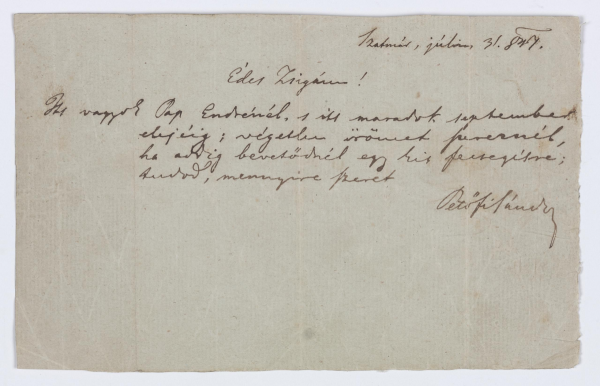 Szatmár, júliu. 31. 847.
Édes Zsigám!
Itt vagyok Pap Endrénél, s itt maradok september
elejéig; végetlen örömet szereznél,
ha addig bevetődnél egy kis fecsegésre;
tudod, mennyire szeret
Petőfi Sándor